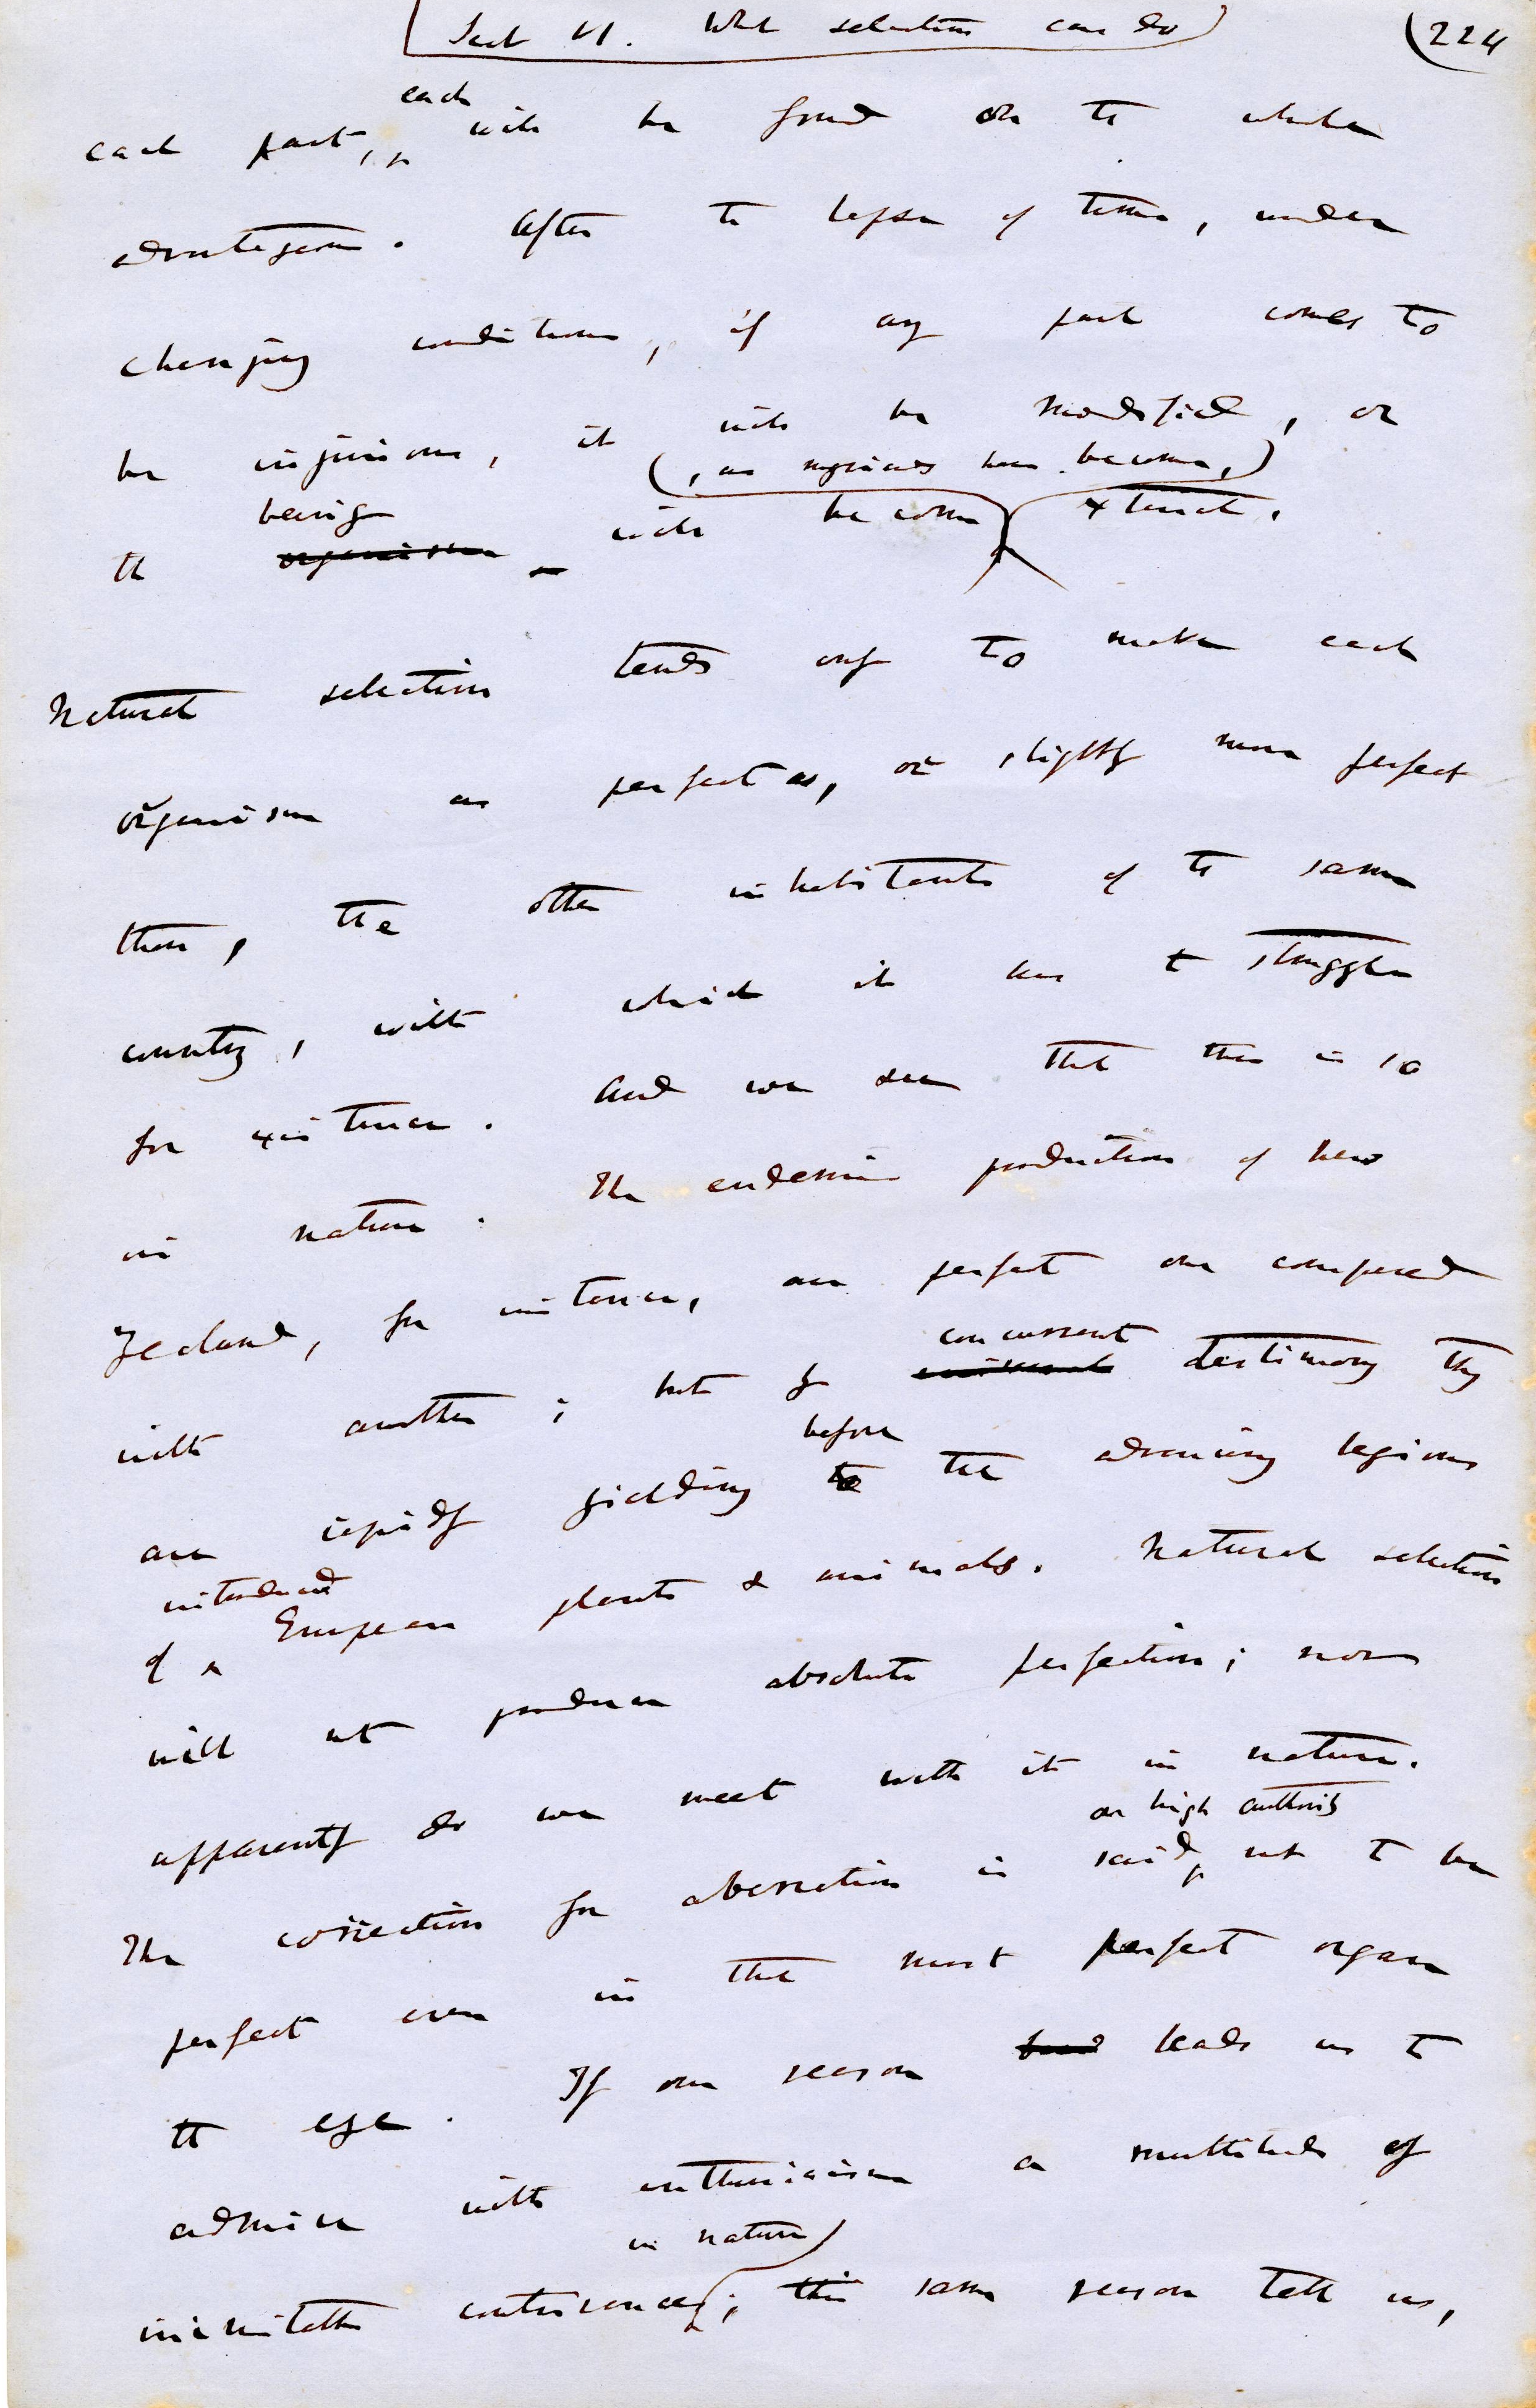 Sect VI. What selection can do
(224
each
each part, will be found on the whole
advantageous. After the lapse of time, under
changing conditions, if any part comes to
be injurious, it will be modified, or
(, as myriads have become,)
being
the organism will become extinct.
Natural selection tends only to make each
organism as perfect as, or slightly more perfect
than, the other inhabitants of the same
country, with which it has to struggle
for existence. And we see that this is so
in nature. The endemic production of New
Zealand, for instance, are perfect one compared
concurrent
with another; but by testimony they
before
are rapidly yielding to the advancing legions
introduced
of European plants & animals. Natural selection
will not produce absolute perfection; nor
apparently do we meet with it in nature.
on high authority
The correction for aberration is said, not to be
perfect even in that most perfect organ
the eye. If our reason leads us to
admire with enthusiasm a multitude of
in nature
inimitable contrivances; this same reason tells us,